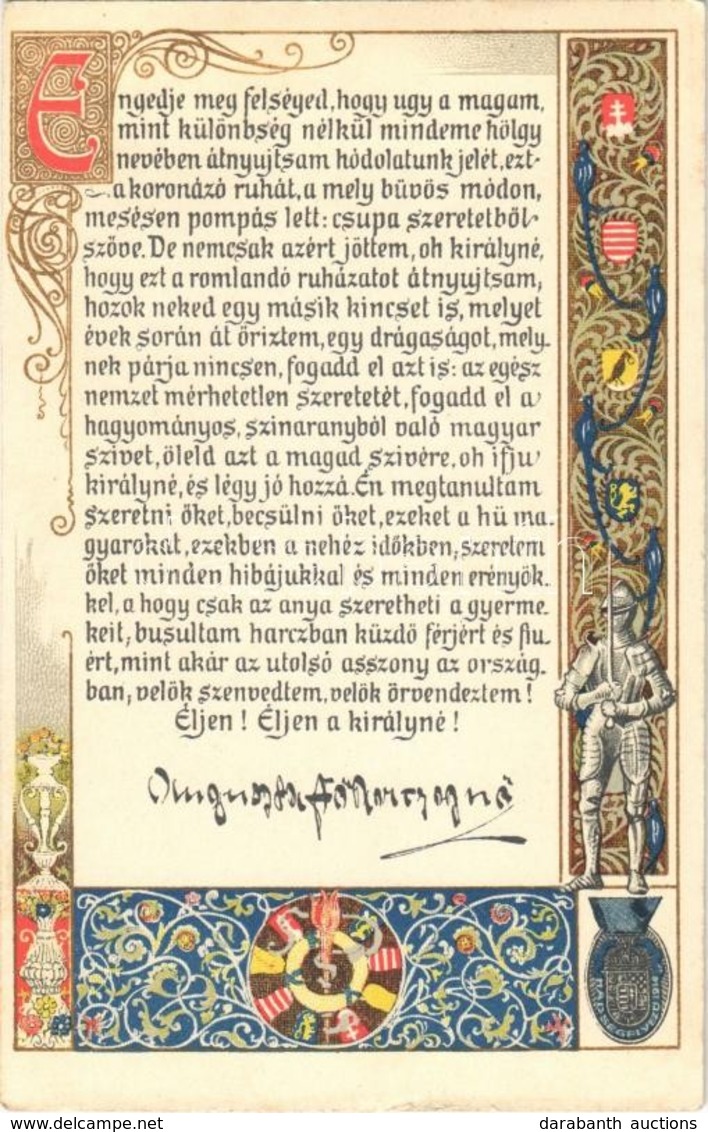 Engedje meg felséged, hogy ugy a magam,
mint különbség nélkül mindeme hölgy
nevében átnyujtsam hódolatunk jelét, ezt
a koronázó ruhát, a mely büvös módon,
mesésen pompás lett: csupa szeretetböl
szöve. De nemcsak azért jöttem, oh királyné,
hogy ezt a romlandó ruházatot átnyujtsam,
hozok neked egy másik kincset is, melyet
évek során át őriztem, egy drágaságot, mely-
nek párja nincsen, fogadd el azt is: az egész
nemzet mérhetetlen szeretetét, fogadd el a
hagyományos, szinaranyból való magyar
szivet, öleld azt a magad szivére, oh ifju
királyné, és légy jó hozzá. Én megtanultam
szeretni őket, becsülni őket, ezeket a hü ma-
gyarokat, ezekben a nehéz időkben, szeretem
őket minden hibájukkal és minden erényök-
kel, a hogy csak az anya szeretheti a gyerme-
keit, busultam harczban küzdő férjért és fiu-
ért, mint akár az utolsó asszony az ország-
ban, velök szenvedtem, velök örvendeztem!
Éljen! Éljen a királyné!
Auguszta főherczegnő
darabanth auctions
www.delcampe.net